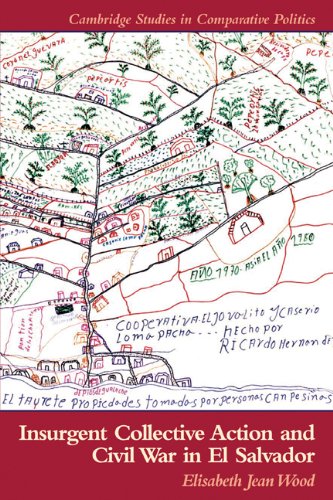 Cambridge Studies in Comparative Politics
PEPE
AÑO 1970. ASIA EL AÑO 1980
COOPERATIVA EL JOVOLITO Y CASERIO
LOMA PACHA... HECHO POR
RICARDO HERNANDE
EL TAYRETE PROPIEDADES TOMADOS POR PERSONAS CAMPESINAS
Insurgent Collective Action and
Civil War in El Salvador
Elisabeth Jean Wood